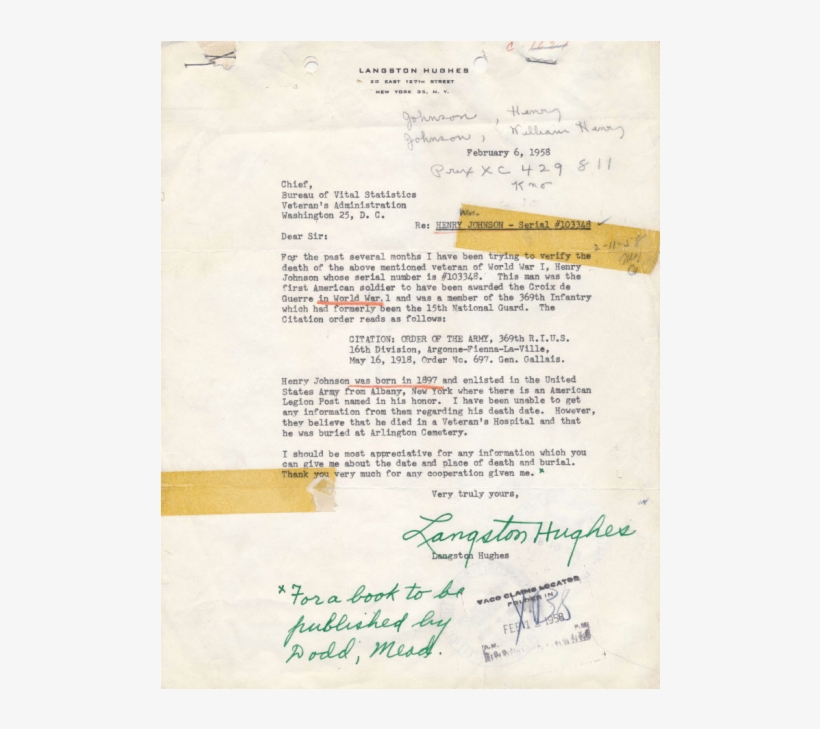 LANGSTON HUGHES
20 EAST 127TH STREET
NEW YORK 35, N. Y.
Johnson, Henry
Johnson, William Henry
February 6, 1958
XC 429 811
Chief,
Bureau of Vital Statistics
Veteran's Administration
Washington 25, D. C.
Re: HENRY JOHNSON - Serial #103348
Dear Sir:
2-11-58
For the past several months I have been trying to verify the
death of the above mentioned veteran of World War I, Henry
Johnson whose serial number is #103348. This man was the
first American soldier to have been awarded the Croix de
Guerre in World War 1 and was a member of the 369th Infantry
which had formerly been the 15th National Guard. The
Citation order reads as follows:
CITATION: ORDER OF THE ARMY, 369th R.I.U.S.
16th Division, Argonne-Fienna-La-Ville,
May 16, 1918, Order No. 697. Gen. Gallais.
Henry Johnson was born in 1897 and enlisted in the United
States Army from Albany, New York where there is an American
Legion Post named in his honor. I have been unable to get
any information from them regarding his death date. However,
they believe that he died in a Veteran's Hospital and that
he was buried at Arlington Cemetery.
I should be most appreciative for any information which you
can give me about the date and place of death and burial.
Thank you very much for any cooperation given me. x
Very truly yours,
Langston Hughes
Langston Hughes
x For a book to be
published by
Dodd, Mead.
VACO CLAIMS LOCATOR
FOLDER IN
FEB 1958
A.M. P.M.